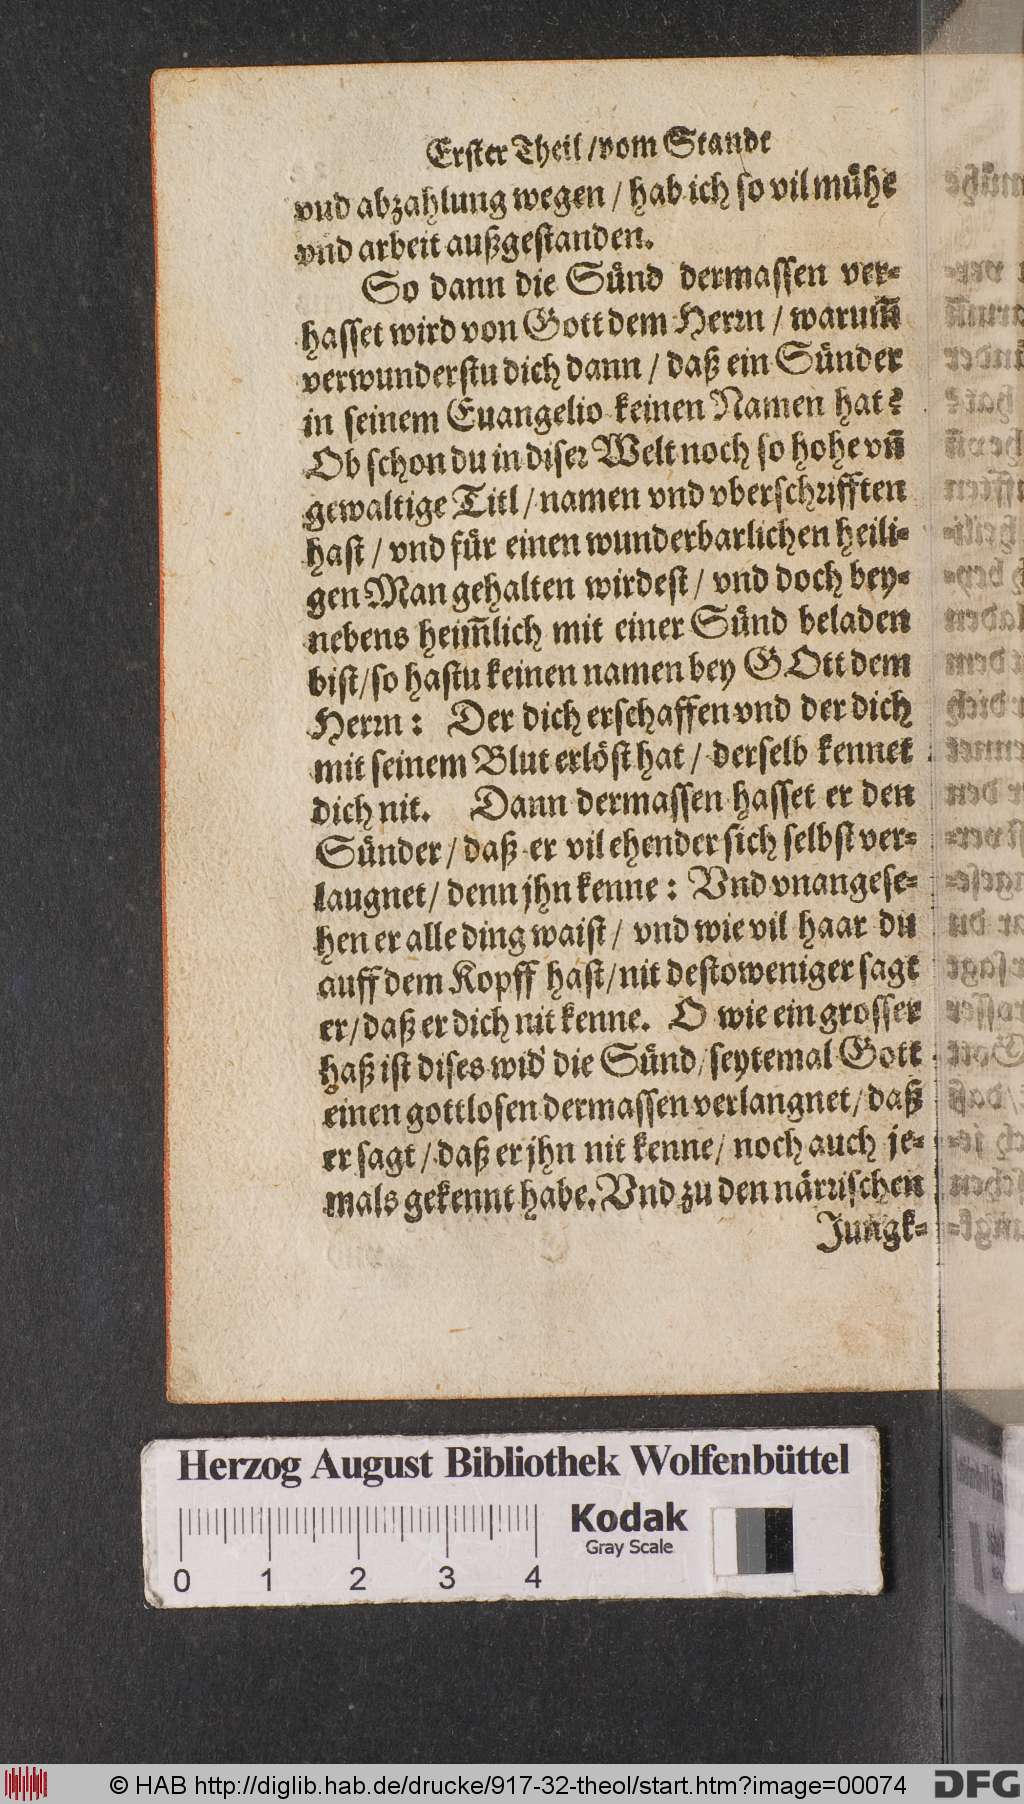 Erster Theil / vom Stande
vnd abzahlung wegen / hab ich so vil mühe
vnd arbeit außgestanden.
So dann die Sünd dermassen ver-
hasset wird von Gott dem Herrn / warum̃
verwunderstu dich dann / daß ein Sünder
in seinem Euangelio keinen Namen hat?
Ob schon du in diser Welt noch so hohe vñ
gewaltige Titl / namen vnd vberschrifften
hast / vnd für einen wunderbarlichen heili-
gen Man gehalten wirdest / vnd doch bey-
nebens heim̃lich mit einer Sünd beladen
bist / so hastu keinen namen bey GOtt dem
Herrn: Der dich erschaffen vnd der dich
mit seinem Blut erlöst hat / derselb kennet
dich nit. Dann dermassen hasset er den
Sünder / daß er vil ehender sich selbst ver-
laugnet / denn jhn kenne: Vnd vnangese-
hen er alle ding waist / vnd wie vil haar du
auff dem Kopff hast / nit destoweniger sagt
er / daß er dich nit kenne. O wie ein grosser
haß ist dises wid' die Sünd / seytemal Gott
einen gottlosen dermassen verlangnet / daß
er sagt / daß er jhn nit kenne / noch auch je-
mals gekennt habe. Vnd zu den närrischen
Jungk-
Herzog August Bibliothek Wolfenbüttel
Kodak
Gray Scale
0 1 2 3 4
© HAB http://diglib.hab.de/drucke/917-32-theol/start.htm?image=00074
DFG